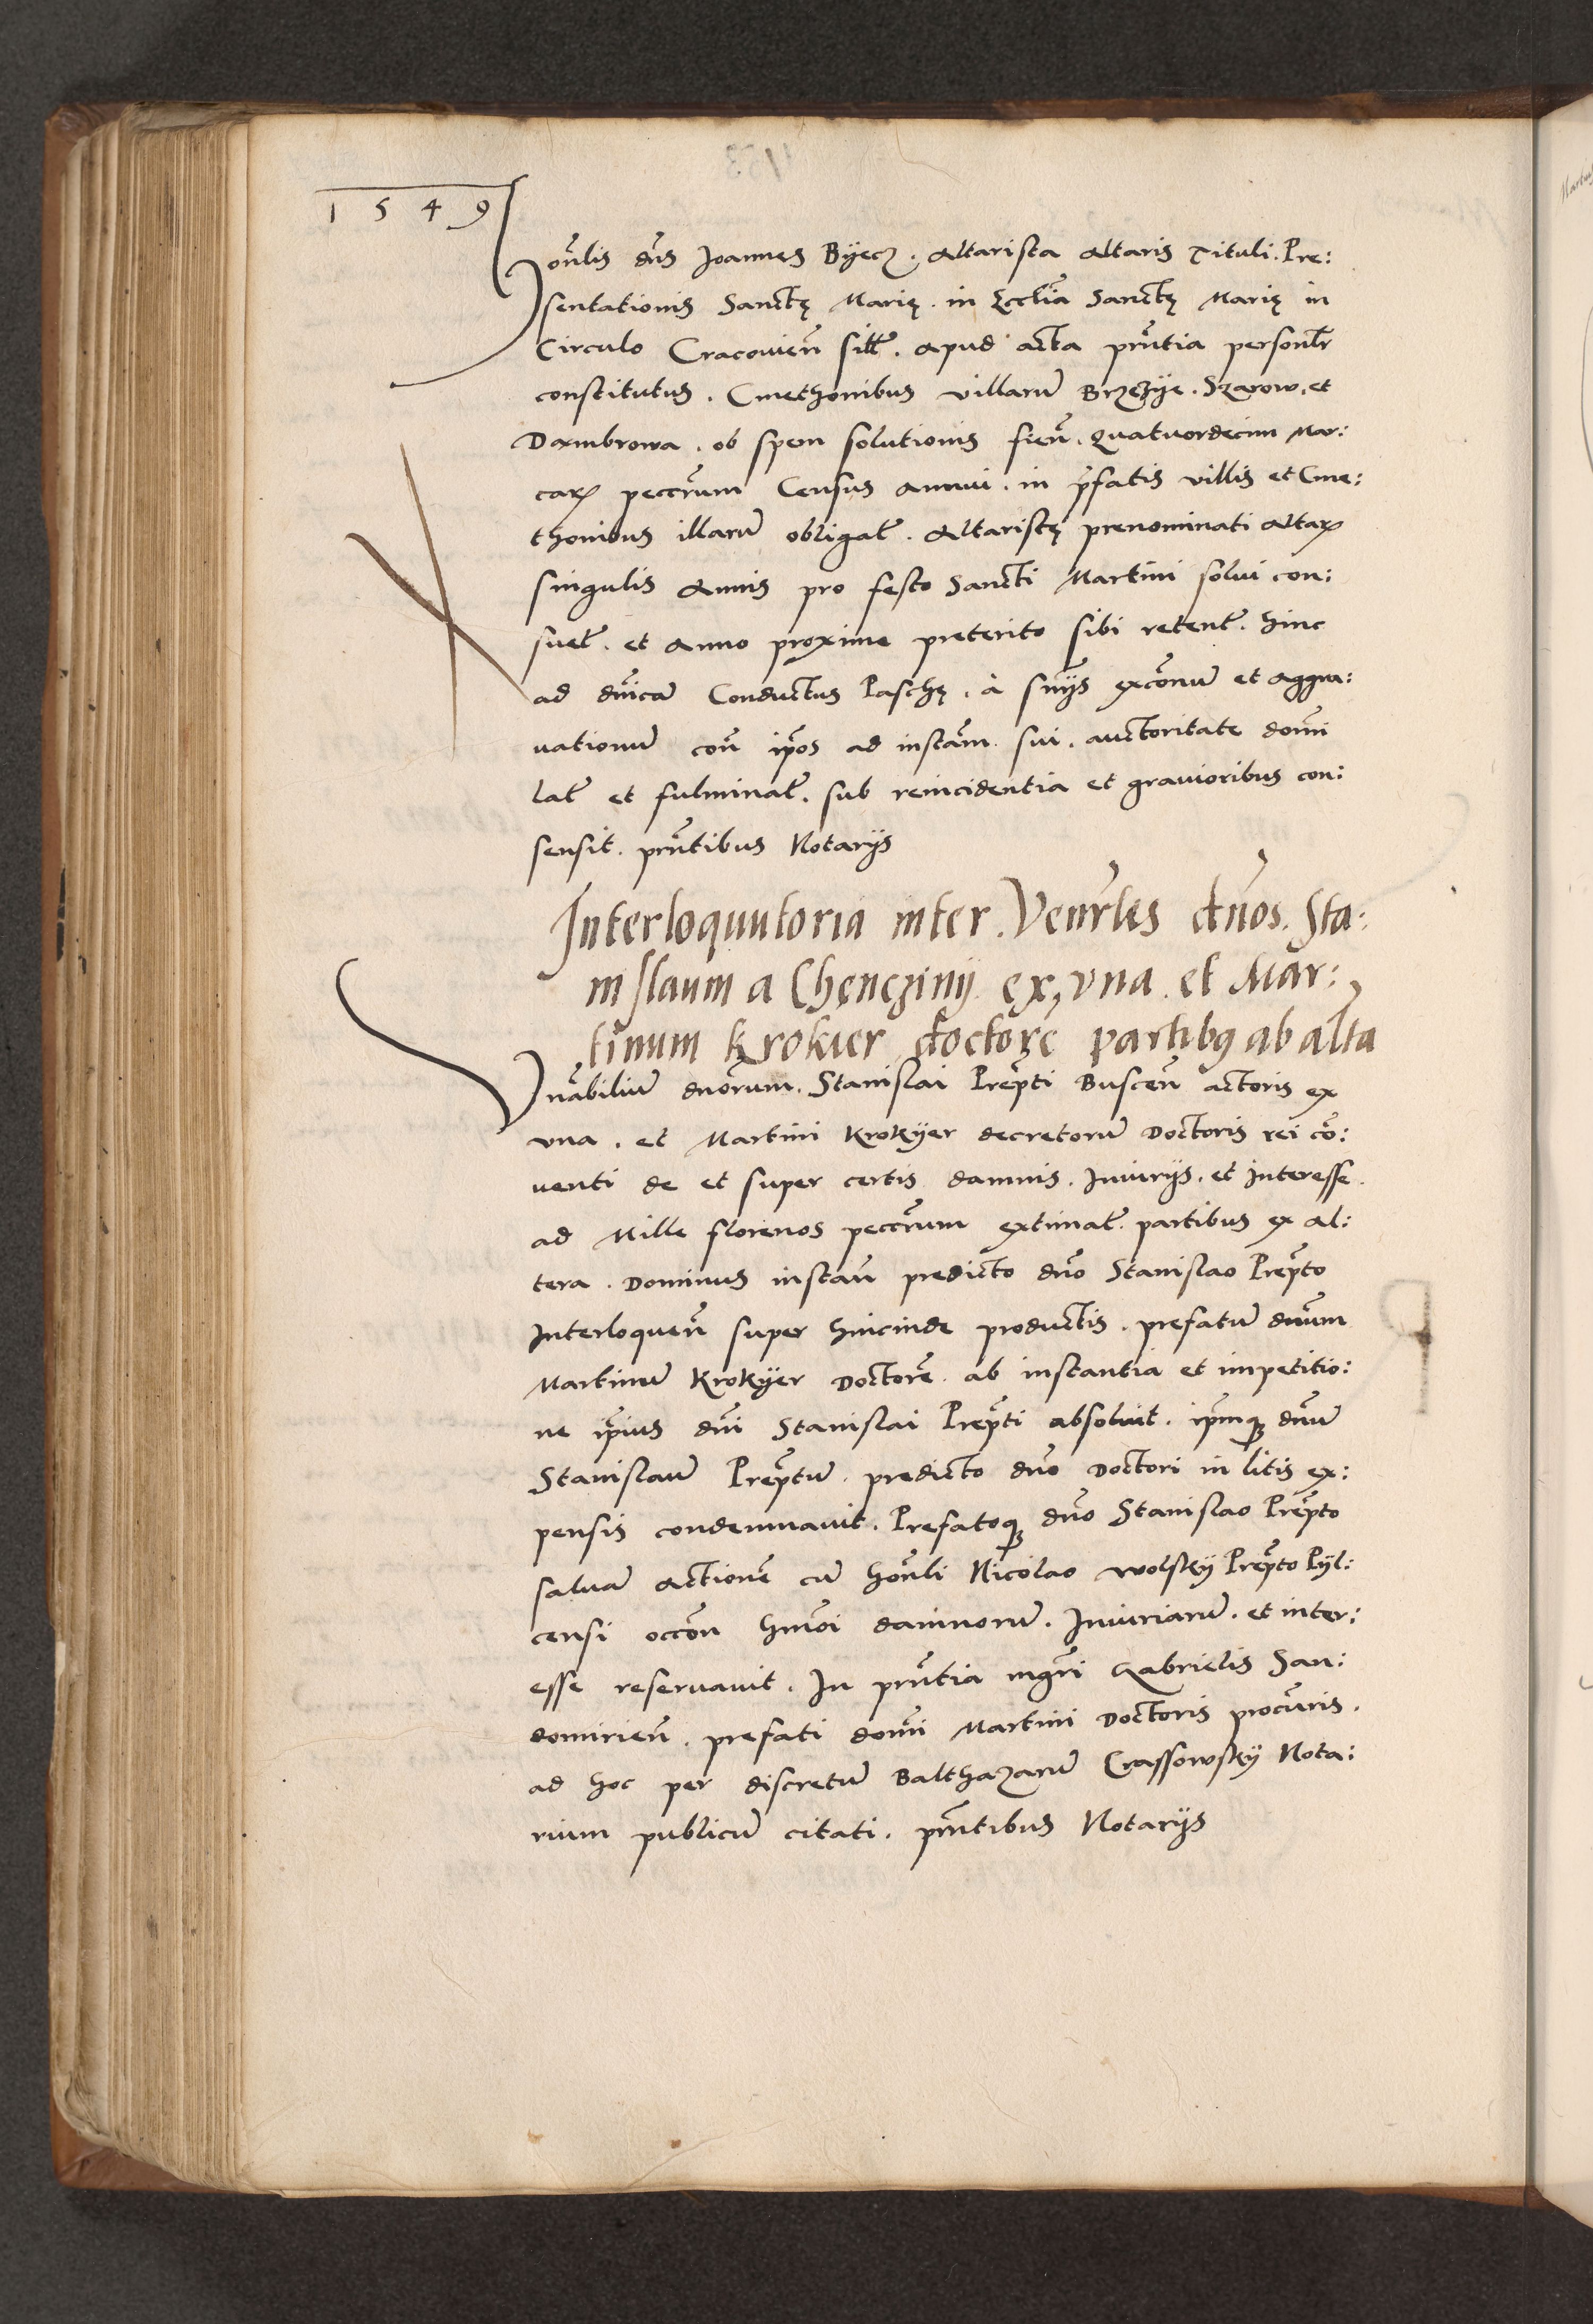 1549
Honlis dns Joannes Byecz. Altarista Altaris Tituli. Pre:
sentationis Sanctę Marię. in Ecclia Sanctę Marię in
Circulo Cracovien sitt. apud acta pntia personlr
constitutus. Cmethonibus villaru Brzezye. Szarow. et
Dambrowa. ob spem solutionis fien. Quatuordecim Mar:
carꝝ peccrum Census annui. in pfatis villis et Cme:
thonibus illaru obligat. Altaristę prenominati Altarꝝ
singulis annis pro festo Sancti Martini solui con:
suet. et Anno proxime preterito sibi retent. hinc
ad dnicā Conductus Paschę. à snijs exconum et aggra:
vationu con ipos ad instam. sui. auctoritate domi
lat et fulminat. sub reincidentia et gravioribus con:
sensit. pntibus Notarijs
Interloquutoria inter. Venrles dnos. Sta:
nislaum a Chęnczinij. ex vna. et Mar:
tinum Krokier doctorē partibꝫ ab alta
Vnabiliu dnorum. Stanislai Prepti Buscen actoris ex
vna. et Martini Krokyer decretoru Doctoris rei cō:
venti de et super certis damnis. Iniurijs. et Interesse.
ad Mille florenos peccrum extimat. partibus ex al:
tera. Dominus instan predicto dno Stanislao Prepto
Interloquen super hincinde productis. prefatu dnum
Martinu Krokyer Doctorē. ab instantia et impetitio:
ne ipius dni Stanislai Prepti absoluit. ipmqꝫ dnu
Stanislau Preptu. predicto dno Doctori in litis ex:
pensis condemnauit. Prefatoqꝫ dno Stanislao Prepto
saluā actionē cū honli Nicolao Wolsky Prepto Pyl:
censi occon hmoi damnorū. Iniuriarū. et inter:
esse reseruauit. In pntia mgri Gabrielis San:
domirien. prefati domi Martini Doctoris procuris.
ad hoc per discretu Balthazaru Crassowsky Nota:
rium publicu citati. pntibus Notarijs